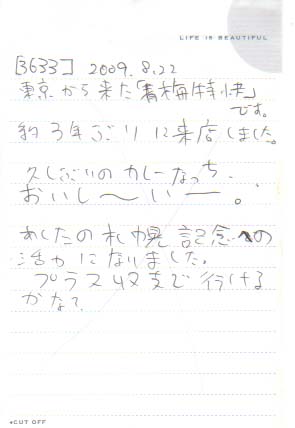 LIFE IS BEAUTIFUL
[3633] 2009.8.22
東京から来た「青梅特快」
です。
約3年ぶりに来店しました。
久しぶりのカレーなっち、
おいし〜いー。
あしたの札幌記念への
活力になりました。
プラス収支で行ける
かな?
*CUT OFF